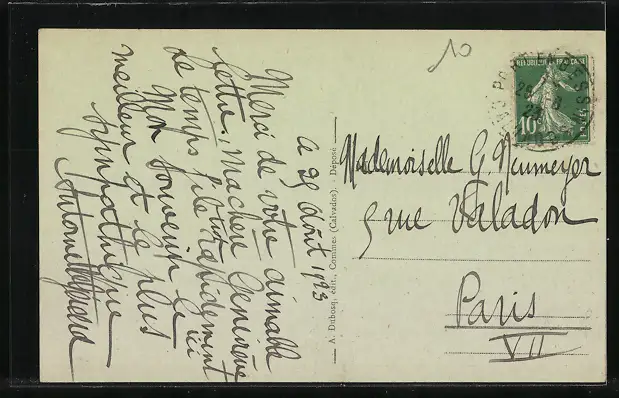 10
RÉPUBLIQUE FRANÇAISE
10c
POSTES
Mademoiselle G. Neumeyer
5 rue Valadon
Paris
VII
A. Dubosq, édit., Commes (Calvados). - Déposé
Le 25 Août 1923
Merci de votre aimable
lettre, Ma chère Geneviève
le temps file rapidement ici
Mon souvenir le
meilleur et le plus
sympathique